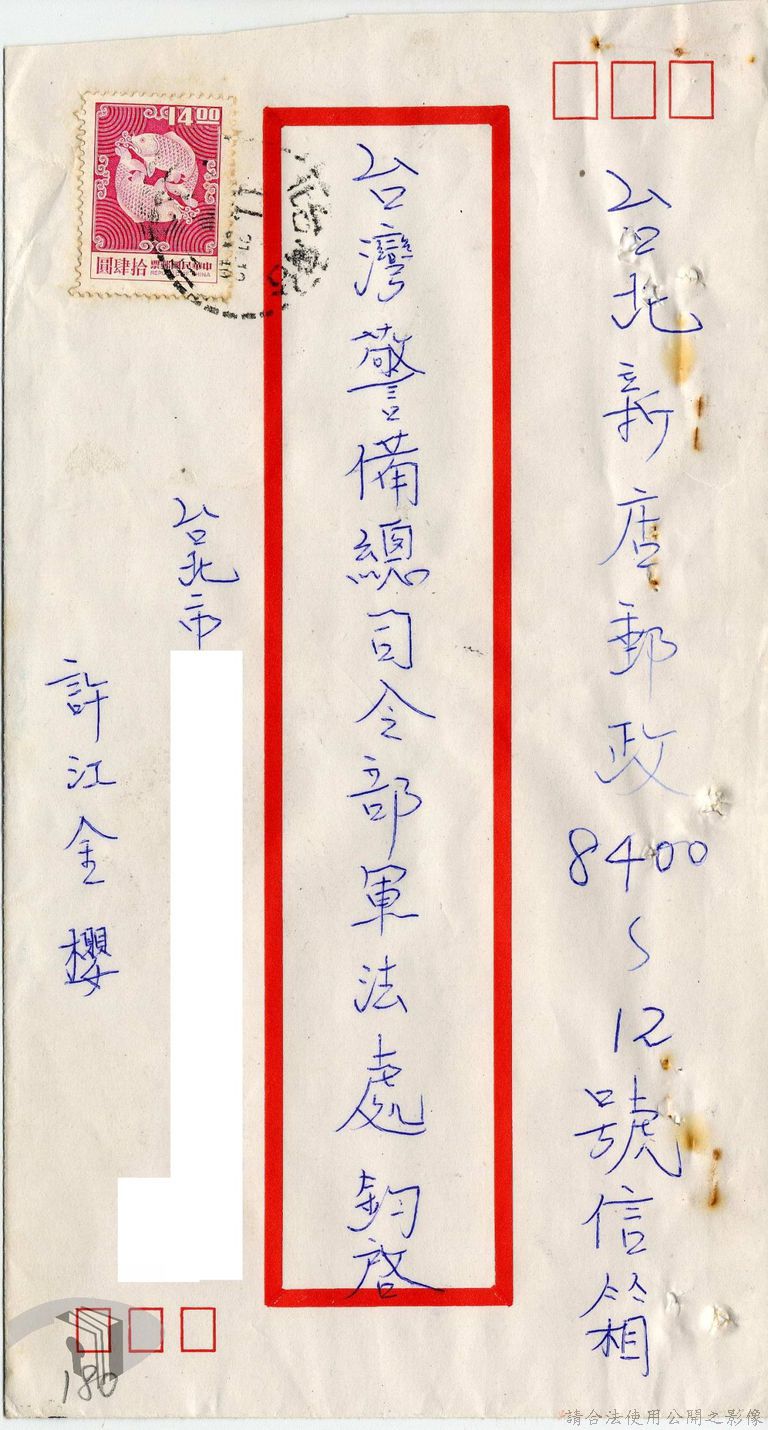 台北新店郵政8400~12號信箱
台灣警備總司令部軍法處 鈞啓
台北市
許江金櫻
14.00
拾肆圓
中華民國郵票
REPUBLIC OF CHINA
180
請合法使用公開之影像